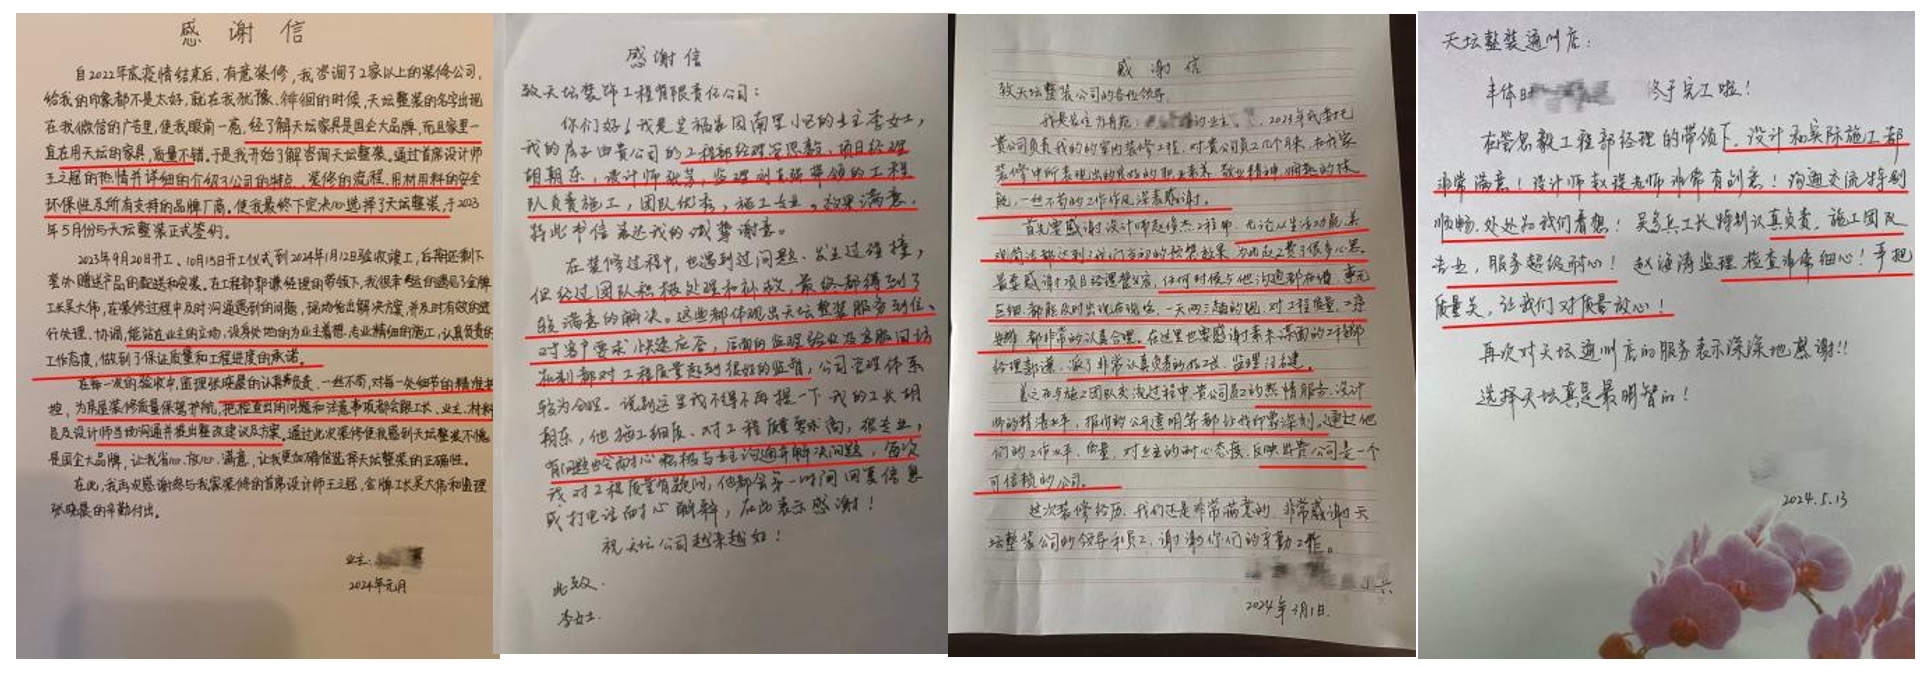 感谢信
自2022年底疫情结束后，有意装修，我咨询了2家以上的装修公司，
给我的印象都不是太好，就在我犹豫、徘徊的时候，天坛整装的名字出现
在我微信的广告里，使我眼前一亮，经了解天坛家具是国企大品牌，而且家里一
直在用天坛的家具，质量不错。于是我开始了解咨询天坛整装。通过首席设计师
王立冠的热情并详细的介绍了公司的特点、装修的流程、用材用料的安全
环保性及所有支持的品牌厂商。使我最终下定决心选择了天坛整装，于2023
年5月份与天坛整装正式签约。
2023年9月20日开工、10月15日开工仪式到2024年1月12日验收竣工，后期还剩下
套外赠送产品的配送和安装。在工程部郭谦经理的带领下，我很幸运的遇见金牌
工长吴大伟，在装修过程中及时沟通遇到的问题，现场给出解决方案，并及时有效的进
行处理、协调，能站在业主的立场，设身处地的为业主着想，专业精细的施工，认真负责的
工作态度，做到了保证质量和工程进度的承诺。
在每一次的验收中，监理张晓晨的认真负责、一丝不苟，对每一处细节的精准把
控，为房屋装修质量保驾护航，把检查出的问题和注意事项都会跟工长、业主、材料
员及设计师当场沟通并提出整改建议及方案。通过此次装修使我感到天坛整装不愧
是国企大品牌，让我省心、放心、满意，让我更加确信选择天坛整装的正确性。
在此，我再次感谢参与我家装修的首席设计师王立冠，金牌工长吴大伟和监理
张晓晨的辛勤付出。
业主：
2024年元月
感谢信
致天坛装饰工程有限责任公司：
你们好！我是定福家园南里小区的业主李女士，
我的房子由贵公司的工程部经理管恩毅、项目经理
胡朝东，设计师张芳，监理刘 带领的工程
队负责施工，团队优秀，施工专业，效果满意，
特此书信表达我的诚挚谢意。
在装修过程中，也遇到过问题、发生过碰撞，
但经过团队积极处理和补救，最终都得到了
较满意的解决。这些都体现出天坛整装服务到位、
对客户要求快速应答，后面的监理验收及客服回访
机制都对工程质量起到很好的监督，公司管理体系
较为合理。说到这里我不得不再提一下我的工长胡
朝东，他施工细致、对工程质量要求高，很专业，
有问题也会耐心积极与业主沟通并解决问题，每次
我对工程质量有疑问，他都会第一时间回复信息
或打电话耐心解释，在此表示感谢！
祝天坛公司越来越好！
此致.
李女士.
感谢信
致天坛整装公司的各位领导，
我是家住 的业主 ，2023年我委托
贵公司负责我的的室内装修工程，对贵公司员工几个月来，在我家
装修中所表现出的良好的职业素养、敬业精神、娴熟的技
能，一丝不苟的工作作风深表感谢。
首先要感谢设计师赵修杰工程师，无论从生活功能，美
观简洁都达到了我们方方的预算效果，为此应工费了很多心思。
最要感谢项目经理樊 ，任何时候与他沟通都在情，事无
巨细，都能及时出现在现场，一天两三趟的跑，对工程质量、工序
安排都非常的认真合理。在这里也要感谢素未谋面的工程部
经理郭谦，派了非常认真负责的好工长、监理
总之在与施工团队交流过程中，贵公司员工的热情服务、设计
师的精湛水平，报价的公开透明等都让我印象深刻。通过他
们的工作水平、质量，对业主的耐心态度，反映出贵公司是一个
可信赖的公司。
这次装修经历，我们还是非常满意的，非常感谢天
坛整装公司的领导和员工，谢谢你们的辛勤工作。
2024年3月1日.
天坛整装通州店：
丰体时 终于完工啦！
在管恩毅工程部经理的带领下，设计和实际施工都
非常满意！设计师赵 老师非常有创意！沟通交流特别
顺畅，处处为我们着想！吴多兵工长特别认真负责，施工团队
专业，服务超级耐心！赵海清监理检查非常细心！手把
质量关，让我们对质量放心！
再次对天坛通州店的服务表示深深地感谢!!
选择天坛真是最明智的！
2024.5.13